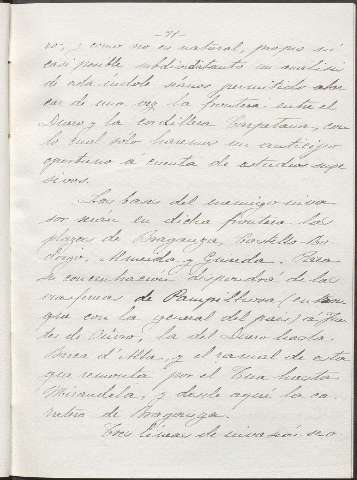 — 71 —
vo, y como no es natural, propio ni
casi posible subdividiendo un análisis
de esta índole sernos permitido abar
car de una vez la frontera entre el
Duero y la cordillera Carpetana, con
lo cual sólo haremos un anticipo
oportuno á cuenta de estudios suce
sivos.
Las bases del enemigo inva
sor serán en dicha frontera las
plazas de Braganza, Castello-Ro
drigo, Almeida y Guarda. Para
su concentración dispondrá de las
de Pampilhosa (en
que con la general del país) á Fuen
tes de Oñoro, la del Duero hasta
Barca d'Alba, y el ramal de esta
que remonta por el Tua hasta
Mirandela, y desde aquí la ca
rretera de Braganza.
Tres líneas de invasión se o